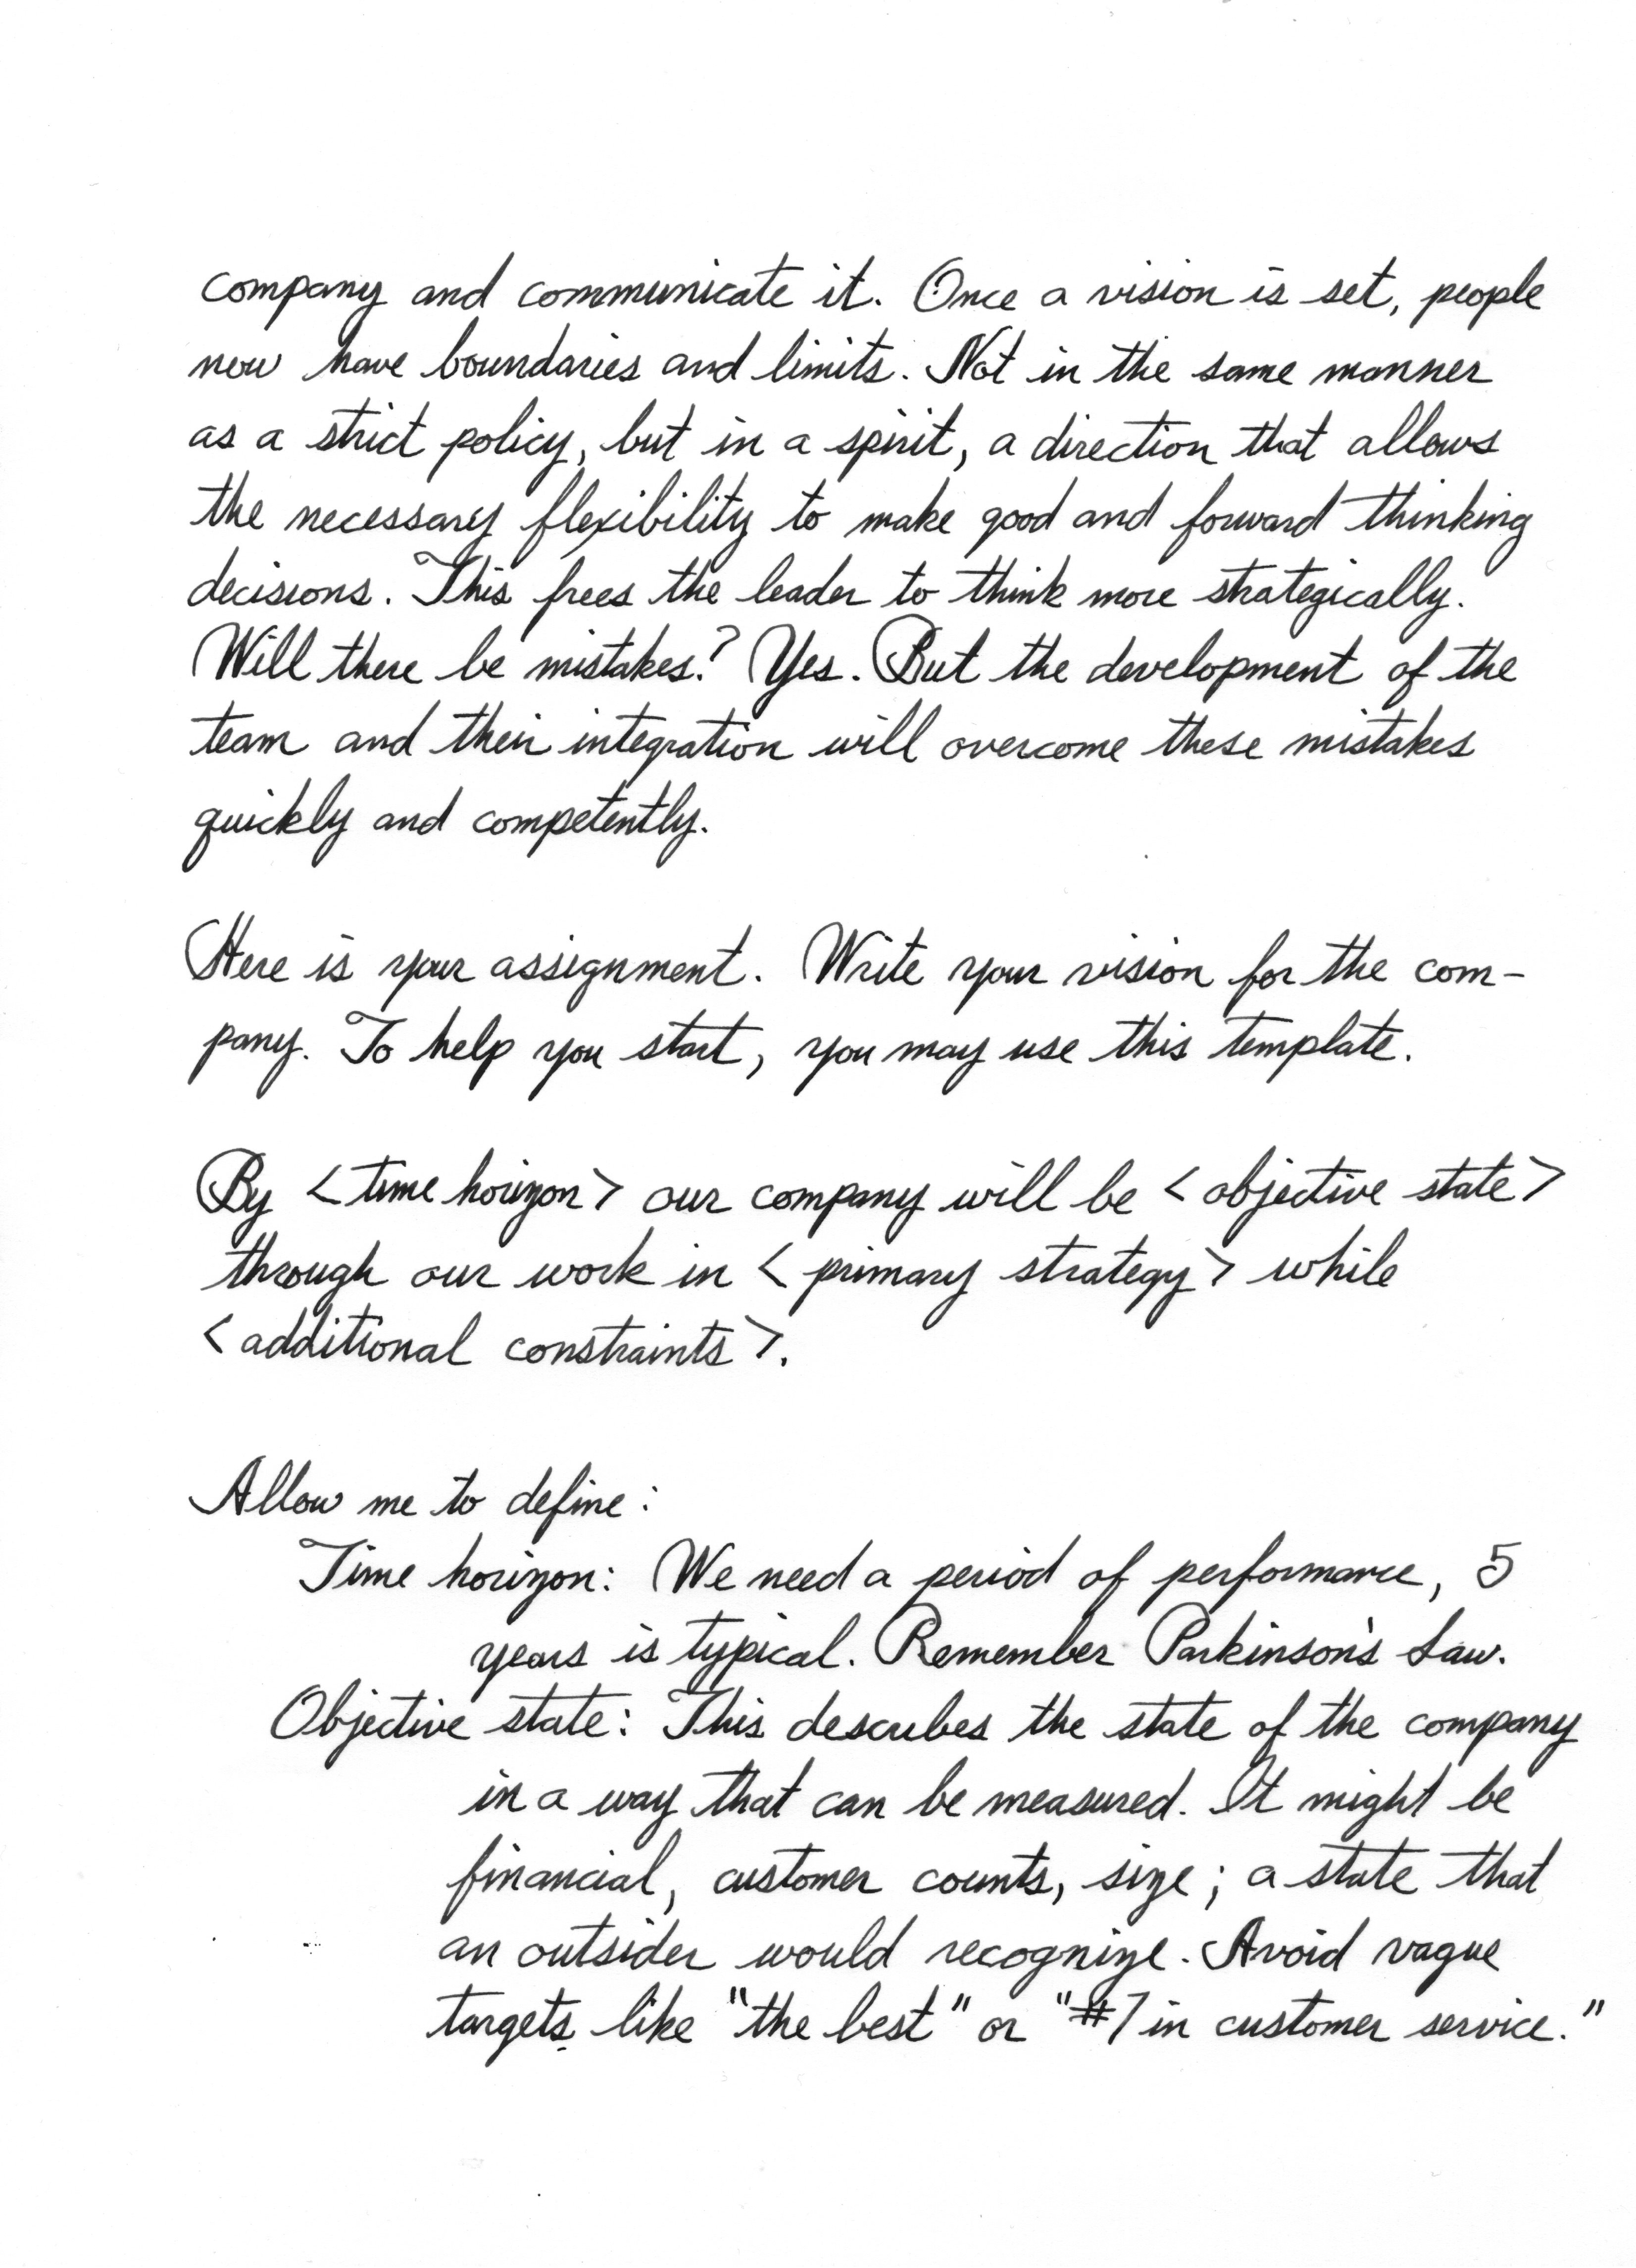 company and communicate it. Once a vision is set, people
now have boundaries and limits. Not in the same manner
as a strict policy, but in a spirit, a direction that allows
the necessary flexibility to make good and forward thinking
decisions. This frees the leader to think more strategically.
Will there be mistakes? Yes. But the development of the
team and their integration will overcome these mistakes
quickly and competently.
Here is your assignment. Write your vision for the com-
pany. To help you start, you may use this template.
By <time horizon> our company will be <objective state>
through our work in <primary strategy> while
<additional constraints>.
Allow me to define:
Time horizon: We need a period of performance, 5
years is typical. Remember Parkinson's Law.
Objective state: This describes the state of the company
in a way that can be measured. It might be
financial, customer counts, size; a state that
an outsider would recognize. Avoid vague
targets like "the best" or "#1 in customer service."